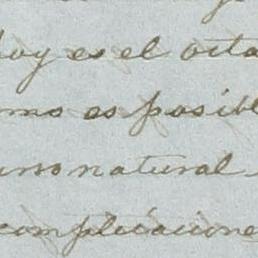 hoy es el octa
mo es posibl
urso natural
complicacione